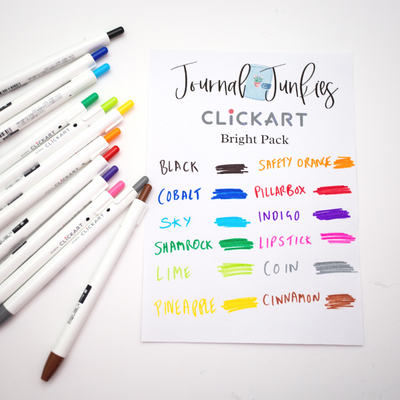 Journal Junkies
CLiCKART
Bright Pack
BLACK
SAFETY ORANGE
COBALT
PILLARBOX
SKY
INDIGO
SHAMROCK
LIPSTICK
LIME
COIN
PINEAPPLE
CINNAMON
CLiCKART
CLiCKART
CLiCKART